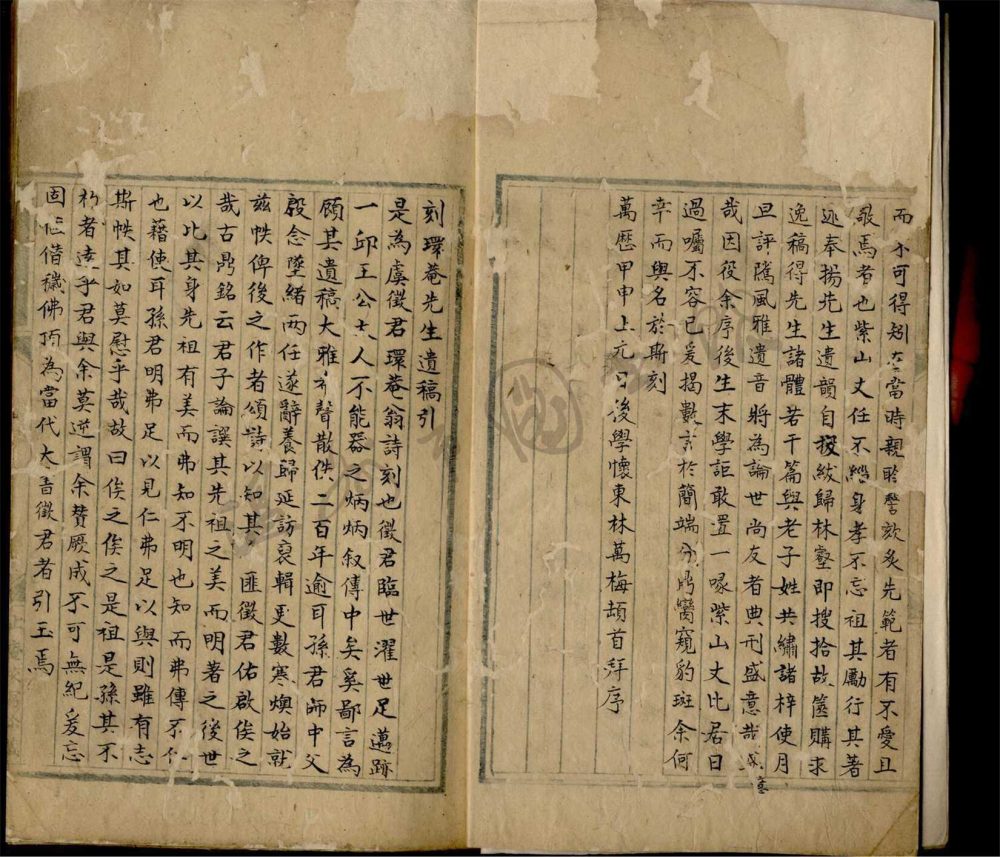 而不可得矧在當時親聆謦欬炙先範者有不愛且
敬焉者也紫山丈任不終身孝不忘祖其勵行其著
述奉揚先生遺韻自投紱歸林壑即搜拾故篋購求
逸稿得先生諸體若干篇與老子姓共繡諸梓使月
旦評隲風雅遺音將為論世尚友者典刑盛意哉
哉因役余序後生末學詎敢置一喙紫山丈比居日
過囑不容已爰揭數言於簡端亦嘗窺豹斑余何
幸而與名於斯刻
萬曆甲申上元日後學懷東林萬梅頓首拜序
刻環菴先生遺稿引
是為虞徵君環菴翁詩刻也徵君臨世濯世足邁跡
一邱王公大人不能器之炳炳叙傳中矣奚鄙言為
顧其遺稿大雅希聲散佚二百年逾耳孫君師中父
殷念墜緒兩任遂辭養歸延訪裒輯更數寒燠始就
茲帙俾後之作者頌詩以知其匪徵君佑啟俟之
哉古鼎銘云君子論譔其先祖之美而明著之後世
以比其身先祖有美而弗知不明也知而弗傳不仁
也藉使耳孫君明弗足以見仁弗足以與則雖有志
斯帙其如莫慰乎哉故曰俟之俟之是祖是孫其不
朽者遠乎君與余莫逆謂余贊厥成不可無紀爰忘
固陋僭穢佛頂為當代大言徵君者引玉焉